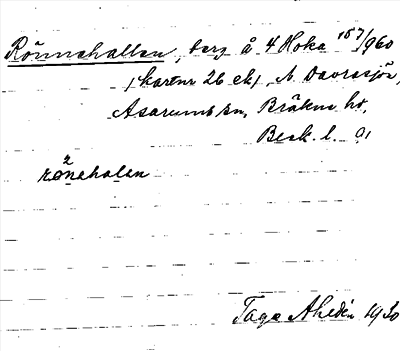 Rönnehallen, berg å 4 Hoka 157/960
(kartnr 26 ek), N. Davrasjö,
Asarums sn, Bräkne hd,
Besk. l. 
rönehalen
Tage Ahldén 1930